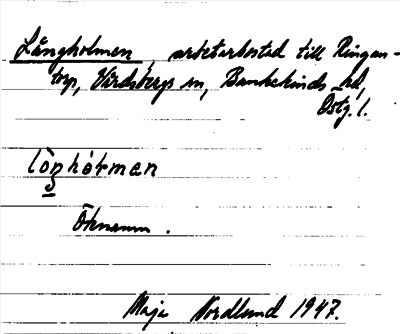 Långholmen, arbetarbostad till Ringan-
torp, Vårdsbergs sn, Bankekinds hd,
Östg. l.
lòŋhòrman
Öknamn.
Maja Nordlund 1947.